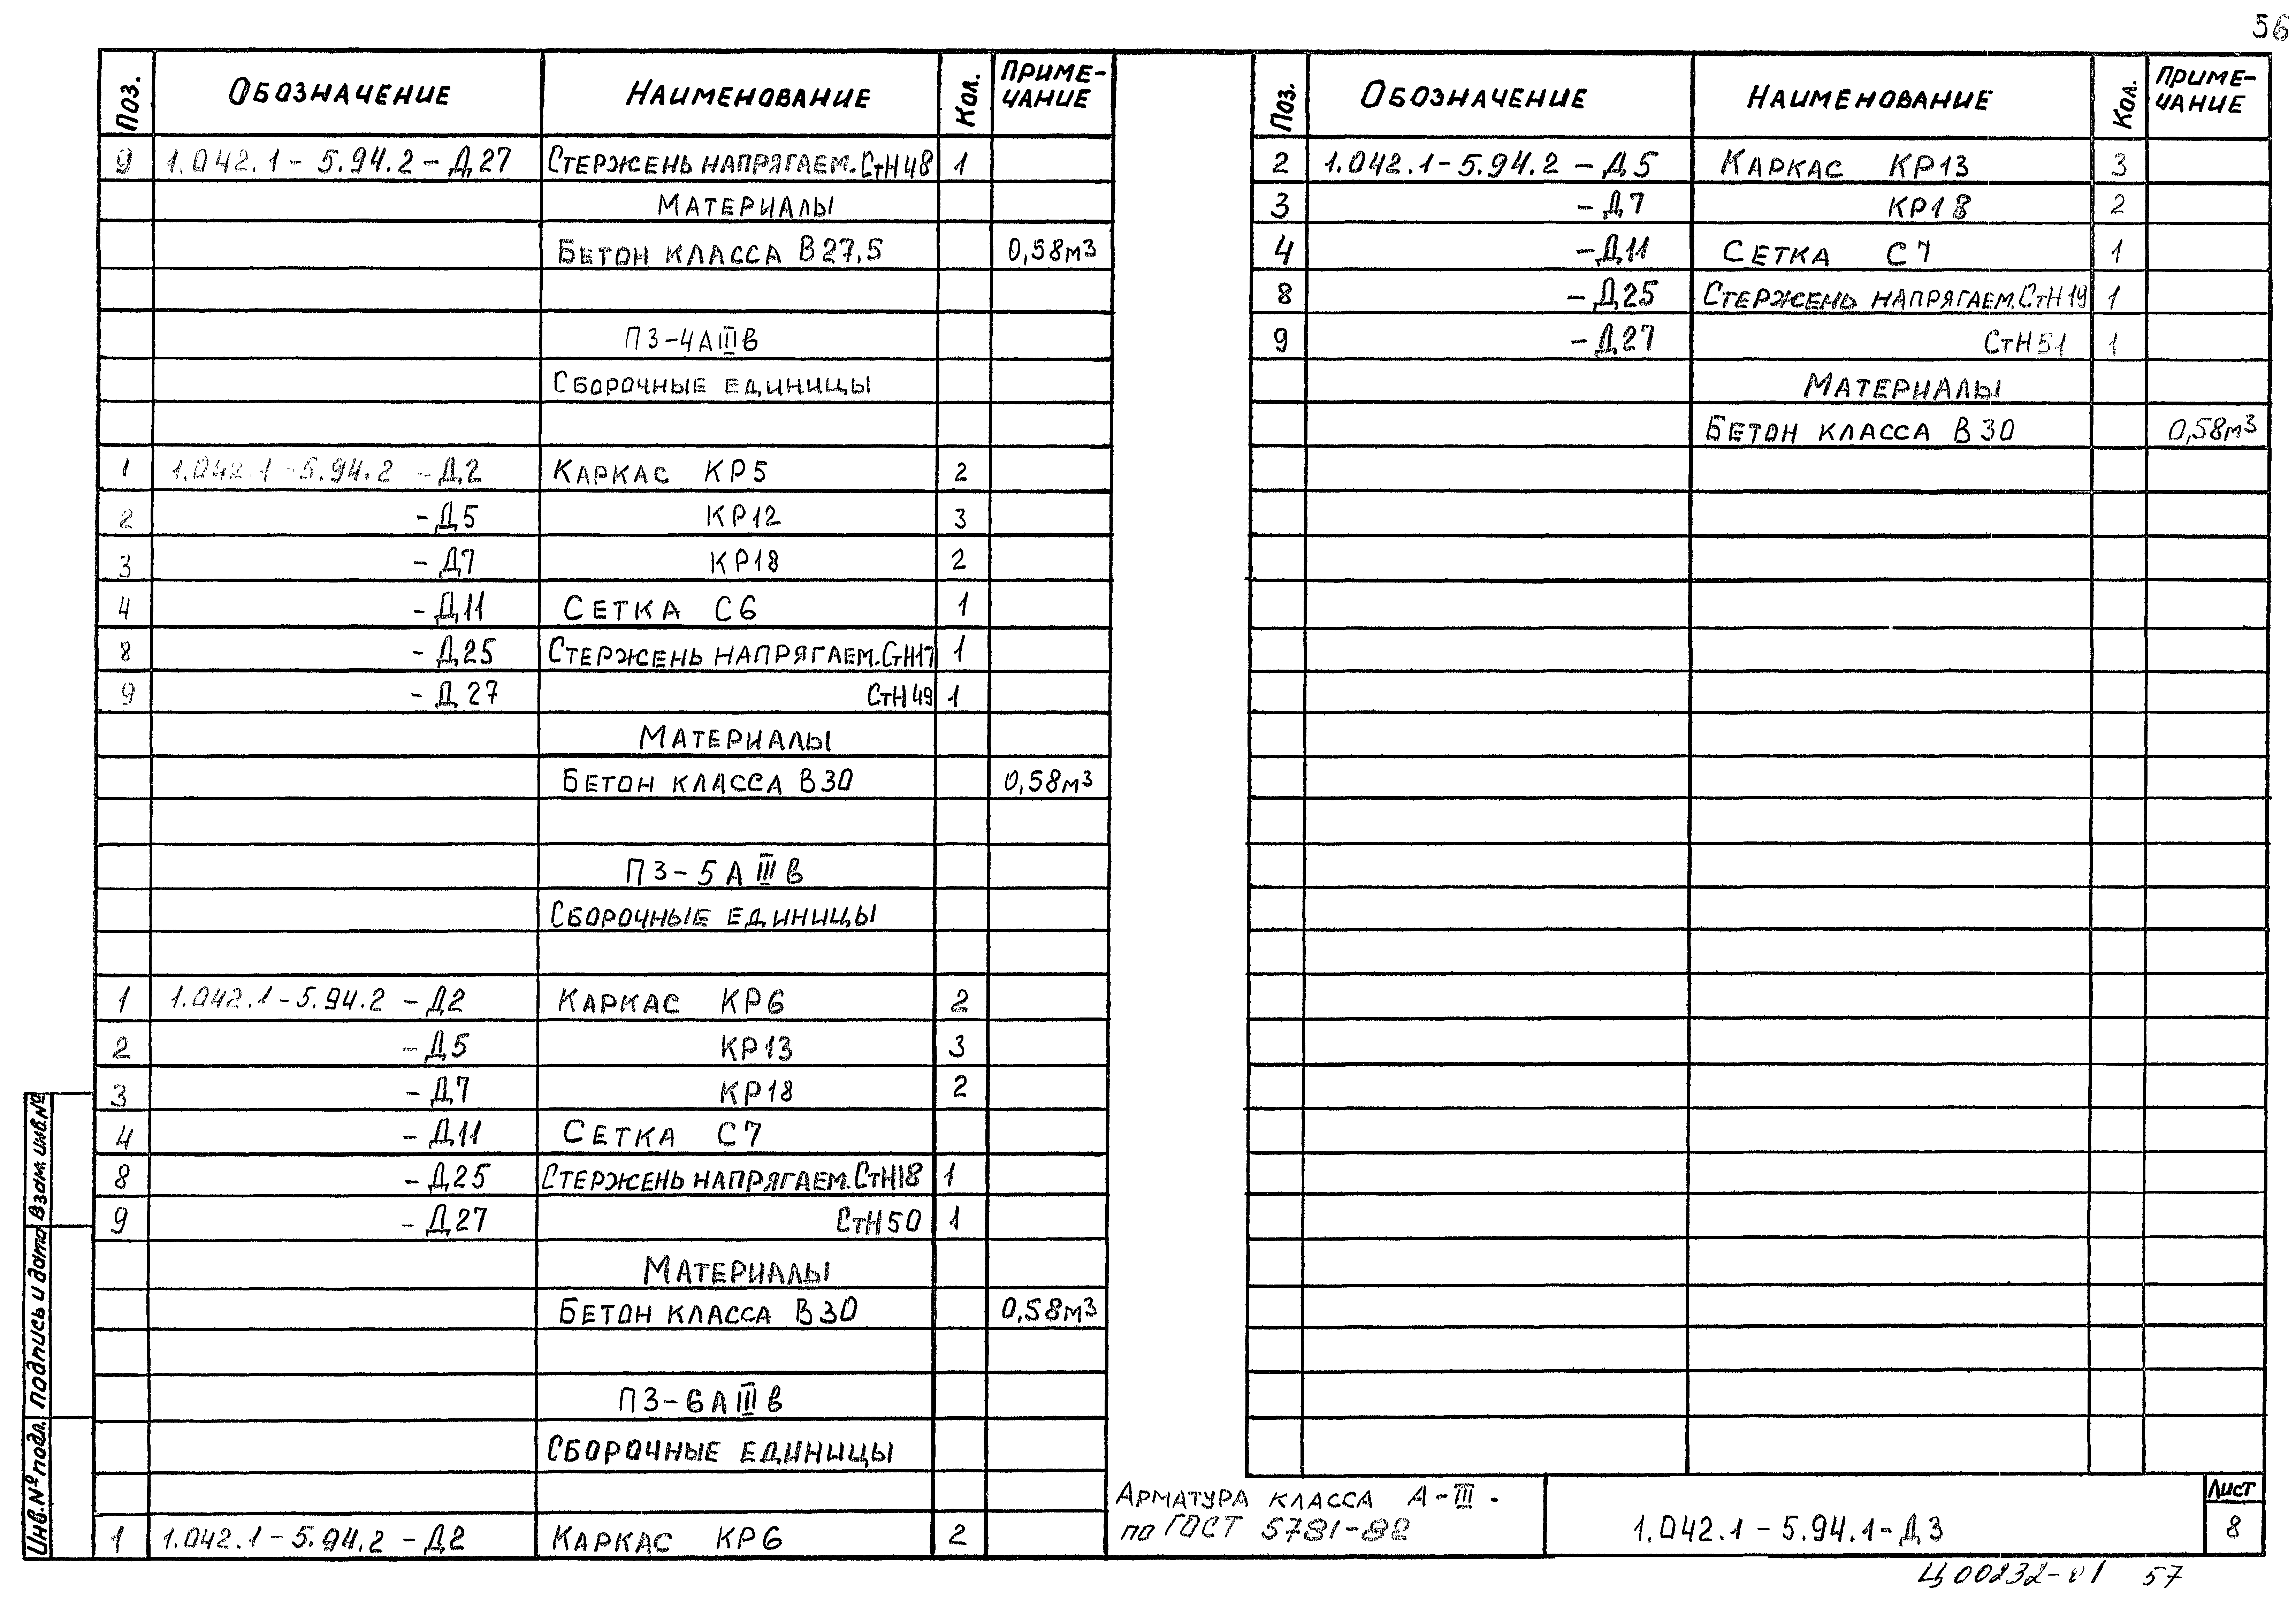 56
Поз. Обозначение Наименование Кол. Приме-чание
9 1.042.1-5.94.2-Д27 Стержень напрягаем. СтН48 1
Материалы
Бетон класса В27,5 0,58м3
П3-4АIIIв
Сборочные единицы
1 1.042.1-5.94.2-Д2 Каркас КР5 2
2 -Д5 КР12 3
3 -Д7 КР18 2
4 -Д11 Сетка С6 1
8 -Д25 Стержень напрягаем. СтН17 1
9 -Д27 СтН49 1
Материалы
Бетон класса В30 0,58м3
П3-5АIIIв
Сборочные единицы
1 1.042.1-5.94.2-Д2 Каркас КР6 2
2 -Д5 КР13 3
3 -Д7 КР18 2
4 -Д11 Сетка С7
8 -Д25 Стержень напрягаем. СтН18 1
9 -Д27 СтН50 1
Материалы
Бетон класса В30 0,58м3
П3-6АIIIв
Сборочные единицы
1 1.042.1-5.94.2-Д2 Каркас КР6 2
Поз. Обозначение Наименование Кол. Приме-чание
2 1.042.1-5.94.2-Д5 Каркас КР13 3
3 -Д7 КР18 2
4 -Д11 Сетка С7 1
8 -Д25 Стержень напрягаем. СтН19 1
9 -Д27 СтН51 1
Материалы
Бетон класса В30 0,58м3
Инв.№ подл. Подпись и дата Взам. инв.№
Арматура класса А-III.
по ГОСТ 5781-82
1.042.1-5.94.1-Д3
Лист
8
Ц00232-01 57